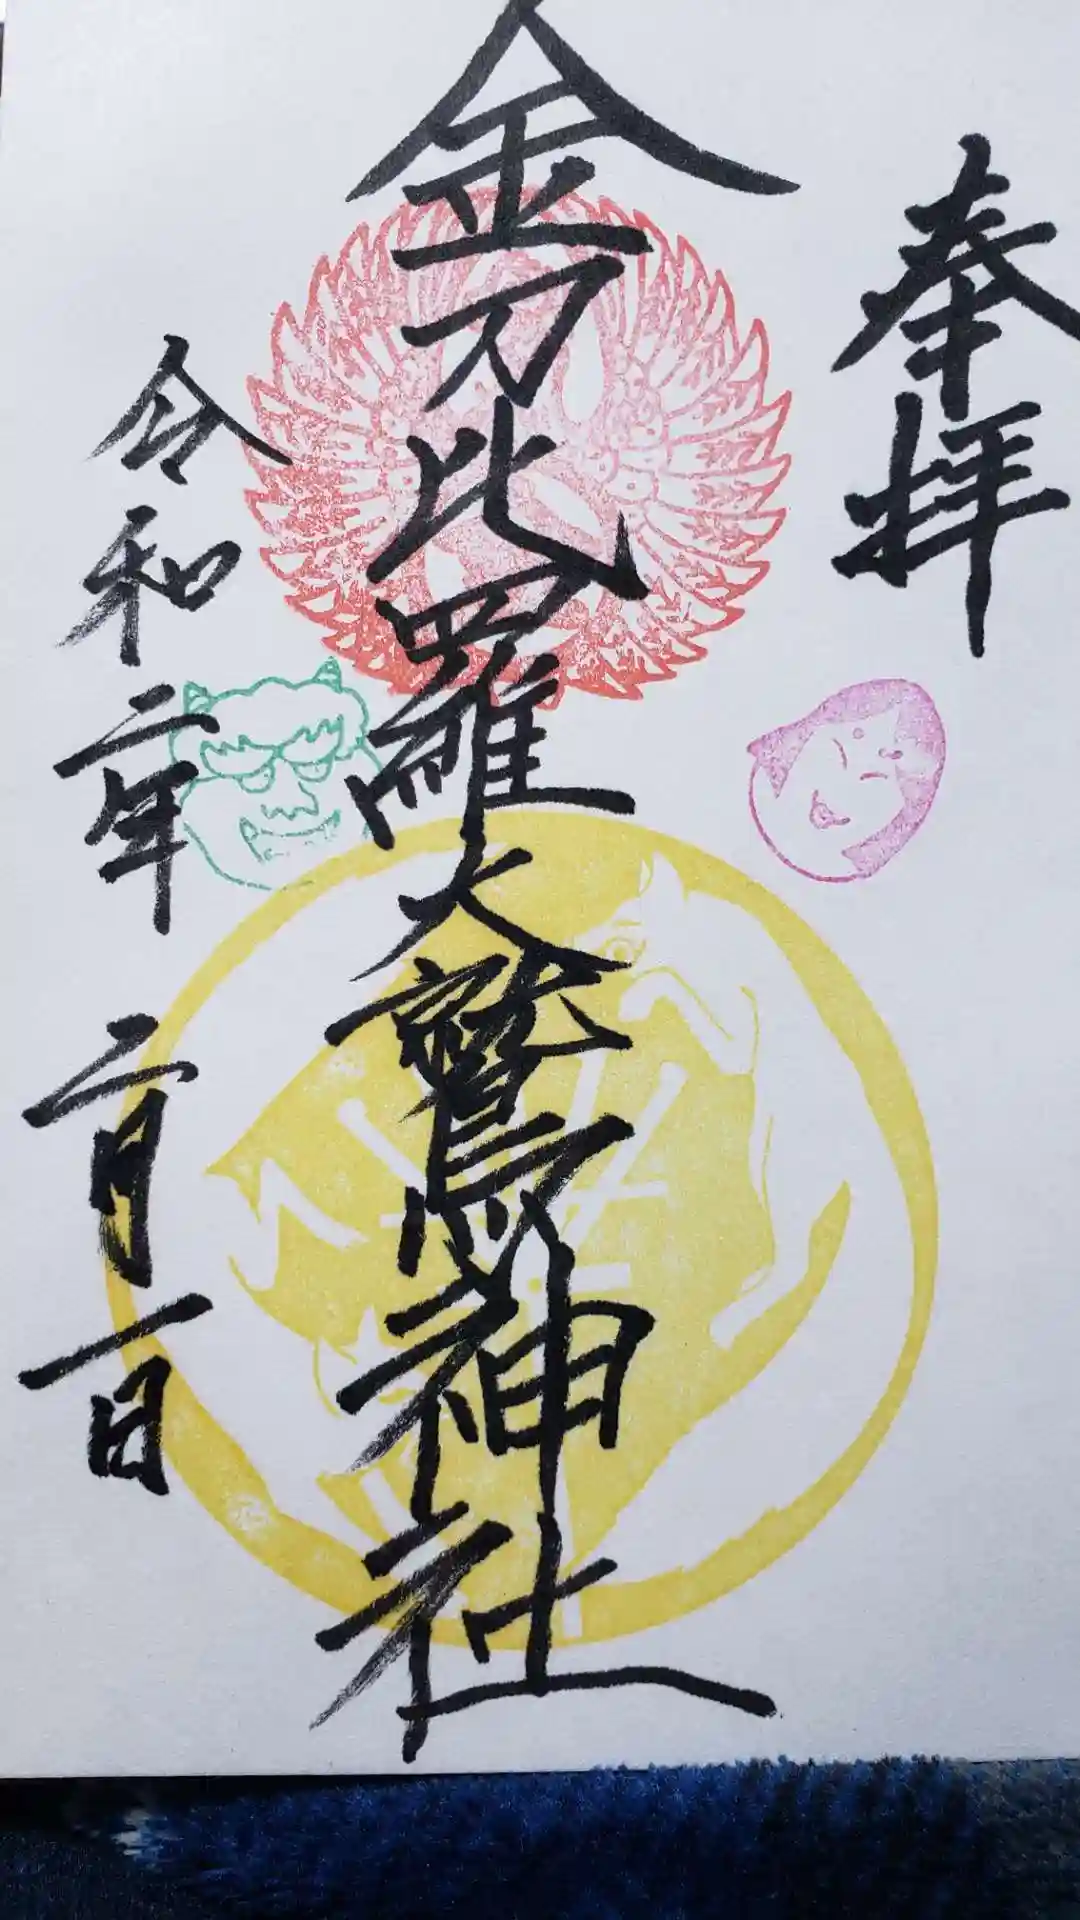 奉拝
金刀比羅大鷲神社
令和二年二月一日